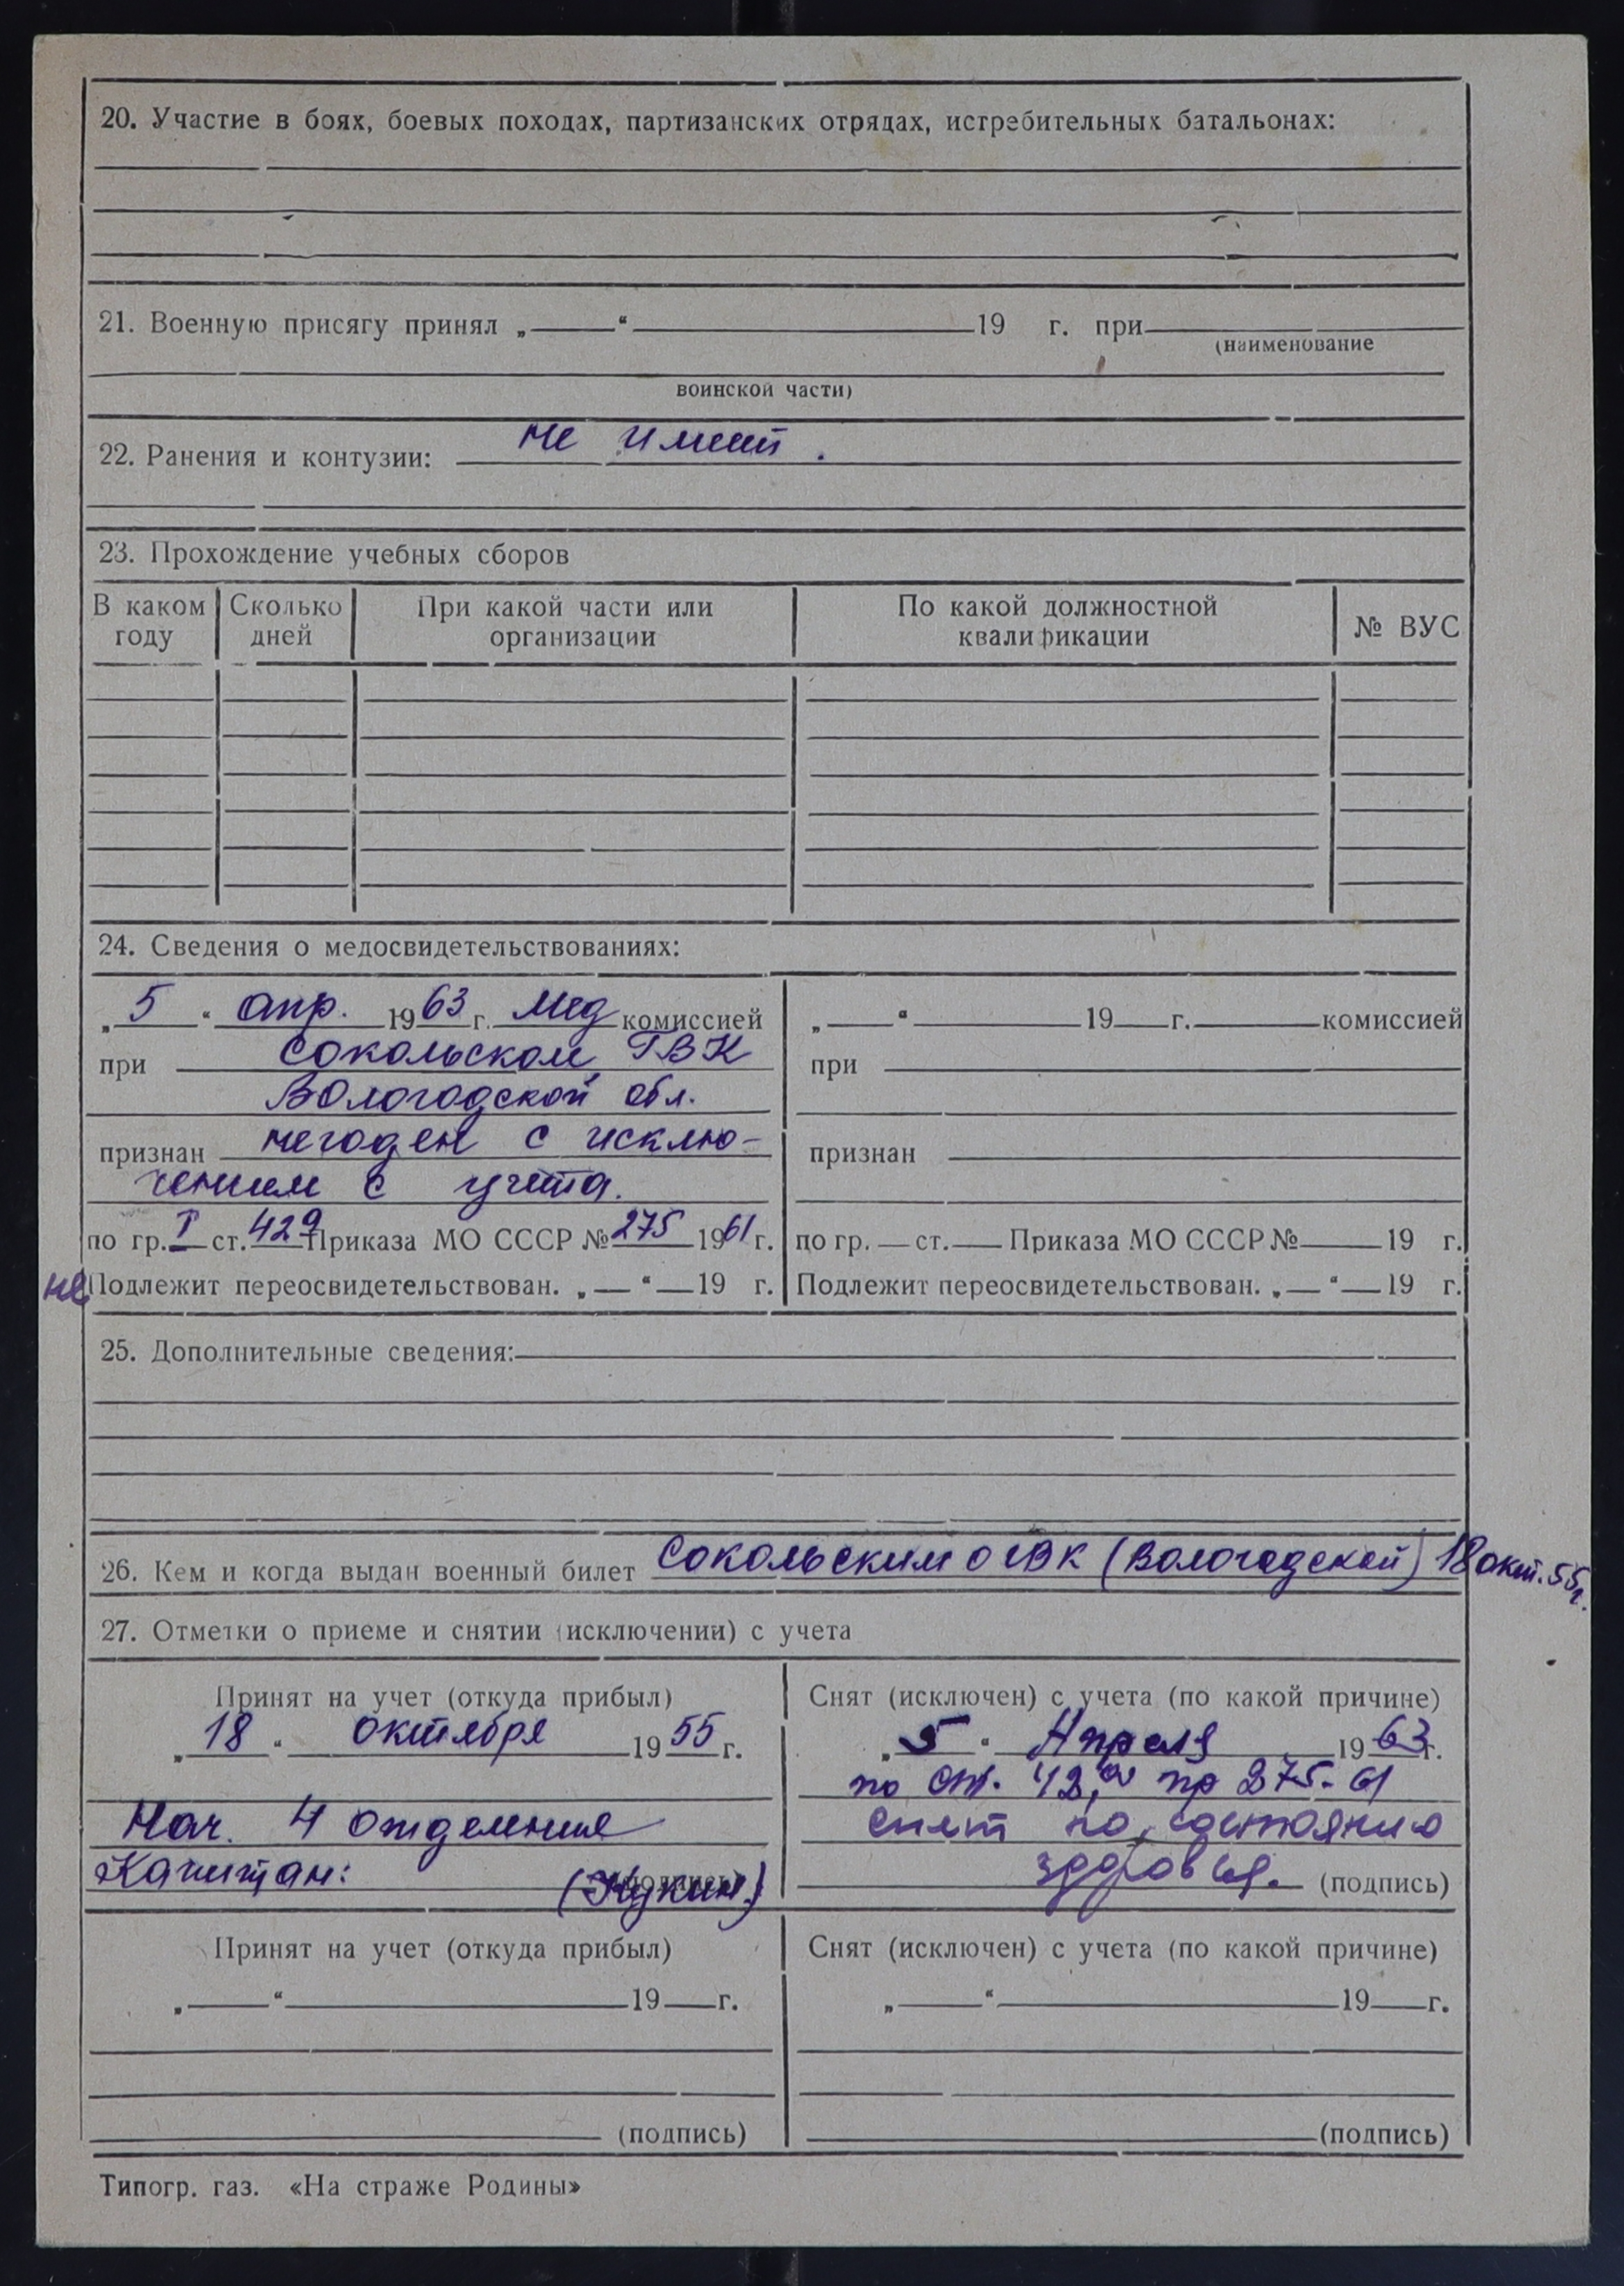 20. Участие в боях, боевых походах, партизанских отрядах, истребительных батальонах:
21. Военную присягу принял „ “ 19 г. при
(наименование
воинской части)
22. Ранения и контузии: не имеет.
23. Прохождение учебных сборов
В каком году Сколько дней При какой части или организации По какой должностной квалификации № ВУС
24. Сведения о медосвидетельствованиях:
„5“ апр. 1963 г. Мед комиссией
при Сокольском ГВК
Вологодской обл.
признан негоден с исклю-
чением с учета.
по гр. I ст. 42а Приказа МО СССР № 275 1961 г.
не Подлежит переосвидетельствован. „ “ 19 г.
„ “ 19 г. комиссией
при
признан
по гр. ст. Приказа МО СССР № 19 г.
Подлежит переосвидетельствован. „ “ 19 г.
25. Дополнительные сведения:
26. Кем и когда выдан военный билет Сокольским ОГВК (Вологодской) 18 окт. 55 г.
27. Отметки о приеме и снятии (исключении) с учета
Принят на учет (откуда прибыл)
„18“ октября 1955 г.
Нач. 4 отделения
Капитан: (подпись)
Снят (исключен) с учета (по какой причине)
„5“ Апреля 1963 г.
по ст. 42,а пр 275-61
снят по состоянию
здоровья. (подпись)
Принят на учет (откуда прибыл)
„ “ 19 г.
(подпись)
Снят (исключен) с учета (по какой причине)
„ “ 19 г.
(подпись)
Типогр. газ. «На страже Родины»